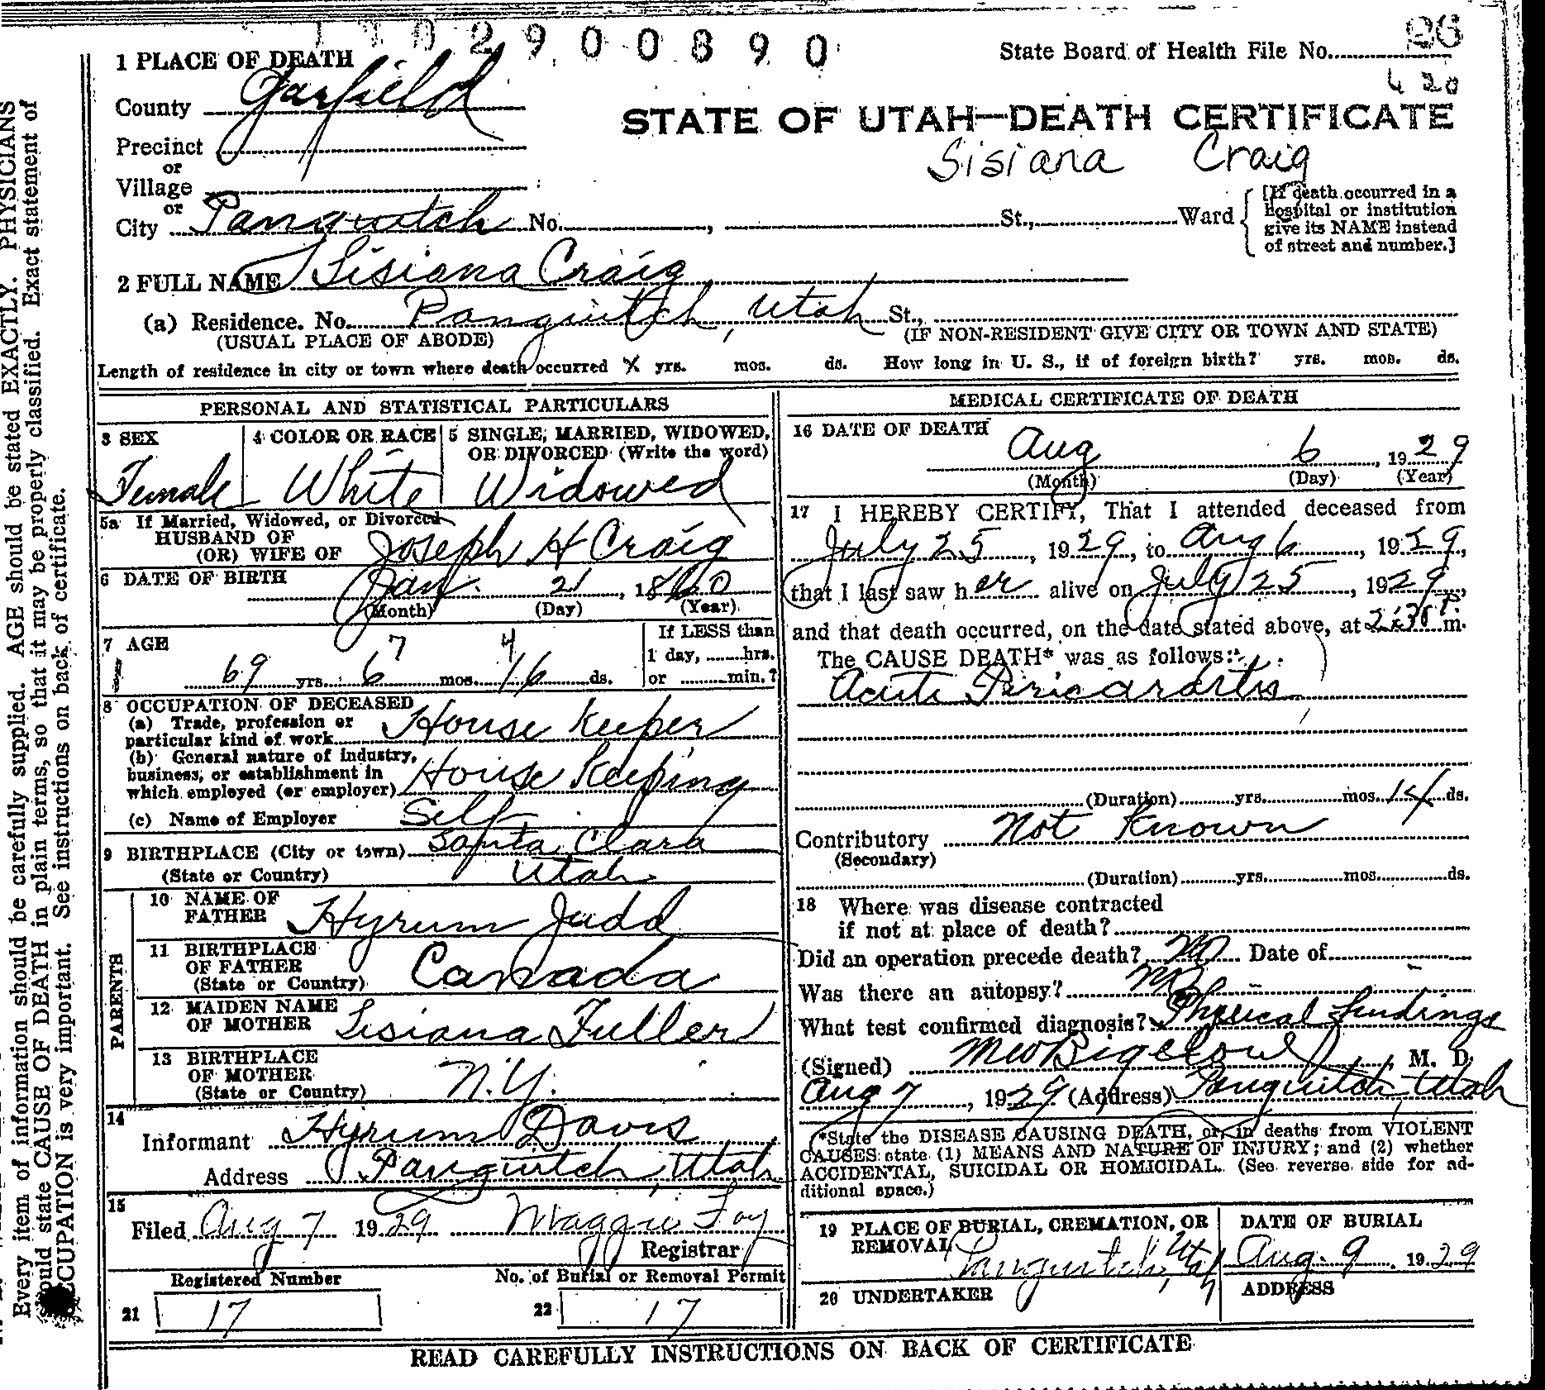 1 1 0 2 9 0 0 8 9 0
State Board of Health File No. 26
4 20
1 PLACE OF DEATH
County Garfield
STATE OF UTAH—DEATH CERTIFICATE
Precinct
or
Sisiana Craig
Village
or
City Panguitch No. , St., Ward
[If death occurred in a
Hospital or institution
give its NAME instead
of street and number.]
2 FULL NAME Sisiana Craig
(a) Residence. No. Panguitch, Utah St.,
(USUAL PLACE OF ABODE) (IF NON-RESIDENT GIVE CITY OR TOWN AND STATE)
Length of residence in city or town where death occurred X yrs. mos. ds. How long in U. S., if of foreign birth? yrs. mos. ds.
PERSONAL AND STATISTICAL PARTICULARS
3 SEX
Female
4 COLOR OR RACE
White
5 SINGLE, MARRIED, WIDOWED,
OR DIVORCED (Write the word)
Widowed
5a If Married, Widowed, or Divorced
HUSBAND OF
(OR) WIFE OF Joseph H Craig
6 DATE OF BIRTH
Jan. 21, 1860
(Month) (Day) (Year)
7 AGE
7 4
69 yrs. 6 mos. 16 ds.
If LESS than
1 day, hrs.
or min.?
8 OCCUPATION OF DECEASED
(a) Trade, profession or
particular kind of work House Keeper
(b) General nature of industry,
business, or establishment in
which employed (or employer) House Keeping
(c) Name of Employer Self
9 BIRTHPLACE (City or town) Santa Clara
(State or Country) Utah
PARENTS
10 NAME OF
FATHER Hyrum Judd
11 BIRTHPLACE
OF FATHER
(State or Country) Canada
12 MAIDEN NAME
OF MOTHER Lisiana Fuller
13 BIRTHPLACE
OF MOTHER
(State or Country) N.Y.
14
Informant Hyrum Davis
Address Panguitch, Utah
15
Filed Aug 7 1929 Maggie Foy
Registrar
Registered Number No. of Burial or Removal Permit
21 17 22 17
MEDICAL CERTIFICATE OF DEATH
16 DATE OF DEATH
Aug 6, 1929
(Month) (Day) (Year)
17 I HEREBY CERTIFY, That I attended deceased from
July 25, 1929, to Aug 6, 1929,
that I last saw her alive on July 25, 1929,
and that death occurred, on the date stated above, at 2:30 P. m.
The CAUSE DEATH* was as follows:
Acute Pericarditis
(Duration) yrs. mos. 14 ds.
Contributory Not Known
(Secondary)
(Duration) yrs. mos. ds.
18 Where was disease contracted
if not at place of death?
Did an operation precede death? No Date of
Was there an autopsy? No
What test confirmed diagnosis? Physical findings
(Signed) M W Bigelow, M. D.
Aug 7, 1929 (Address) Panguitch, Utah
*State the DISEASE CAUSING DEATH, or, in deaths from VIOLENT
CAUSES state (1) MEANS AND NATURE OF INJURY; and (2) whether
ACCIDENTAL, SUICIDAL OR HOMICIDAL. (See reverse side for ad-
ditional space.)
19 PLACE OF BURIAL, CREMATION, OR
REMOVAL Panguitch, Utah
DATE OF BURIAL
Aug. 9 1929
20 UNDERTAKER
ADDRESS
READ CAREFULLY INSTRUCTIONS ON BACK OF CERTIFICATE
Every item of information should be carefully supplied. AGE should be stated EXACTLY. PHYSICIANS
should state CAUSE OF DEATH in plain terms, so that it may be properly classified. Exact statement of
OCCUPATION is very important. See instructions on back of certificate.